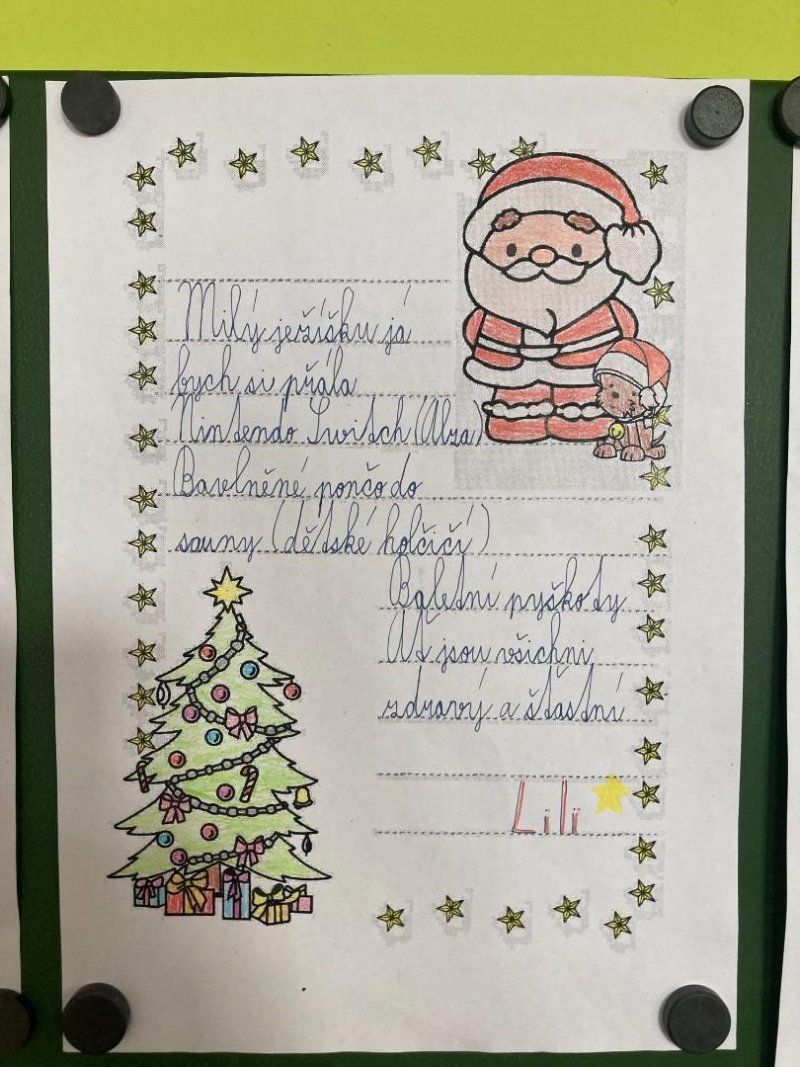 Milý ježíšku já
bych si přála
Nintendo Switch (Alza)
Bavlněné pončo do
sauny (dětské holčičí)
Baletní pyškoty
Ať jsou všichni
zdravý a šťastní
Lili